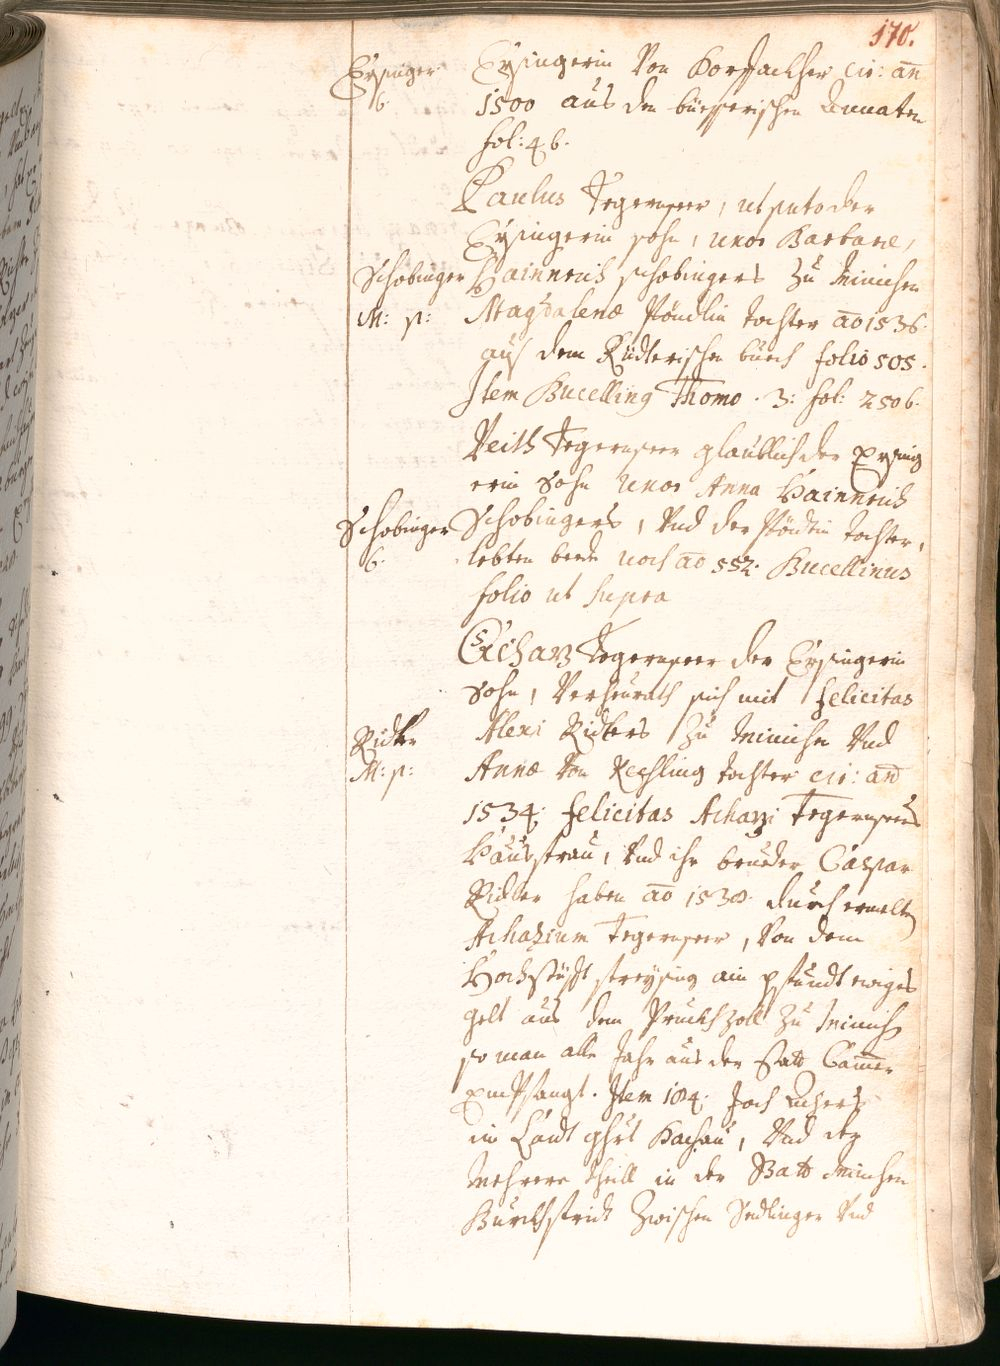 170.
Eysinger
6.
Eysingerin Von Hor cir: an
1500 aus den bürgerischen Annaten
fol: 46.
Paulus Tegernseer, ut puto der
Eysingerin sohn, uxor Barbara,
Schobinger
M: p:
Hainnrich schobingers zu Minichen
Magdalenæ Pöndlin tochter ao 1536.
aus dem Ridlerischen buech folio 505.
Item Bucelling Thomo. 3: fol: 2506.
Veith Tegernseer glaublich der Eysing
erin Sohn uxor Anna Hainnrich
Schobinger
6.
Schobingers, Und der Pöndlin tochter,
lebten beede noch ao 552. Bucellinus
folio ut supra
Achaz Tegernseer der Eysingerin
Sohn, Verheurath sich mit felicitas
Ridler
M: p:
Alexi Ridlers zu Minichen Und
Annæ Von Rechling tochter cir: an
1534. felicitas Achazi Tegernseers
Hausfrau, Und ihr brueder Caspar
Ridler haben ao 1538. durch ermelten
Achazium Tegernseer, Von dem
Hochstüfft Freysing ain pfundt ewiges
gelt aus dem Pruckh Zoll zu Minich
so man alle Jahr aus der Statt Cammer
Empfangt. Item 184. Joch Ackhers
im Landt ghrt Dachau, Und den
Mehrern theill in der Statt Minchen
Burckhfridt zwischen Sendlinger Und